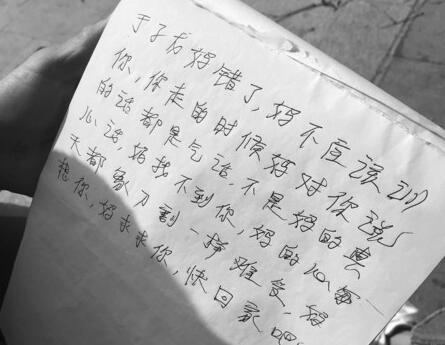 于子龙妈错了,妈不应该训
你,你走的时候妈对你说
的话都是气话,不是妈的真
心话,妈找不到你,妈的心每一
天都象刀割一样难受,妈
想你,妈求求你,快回家吧